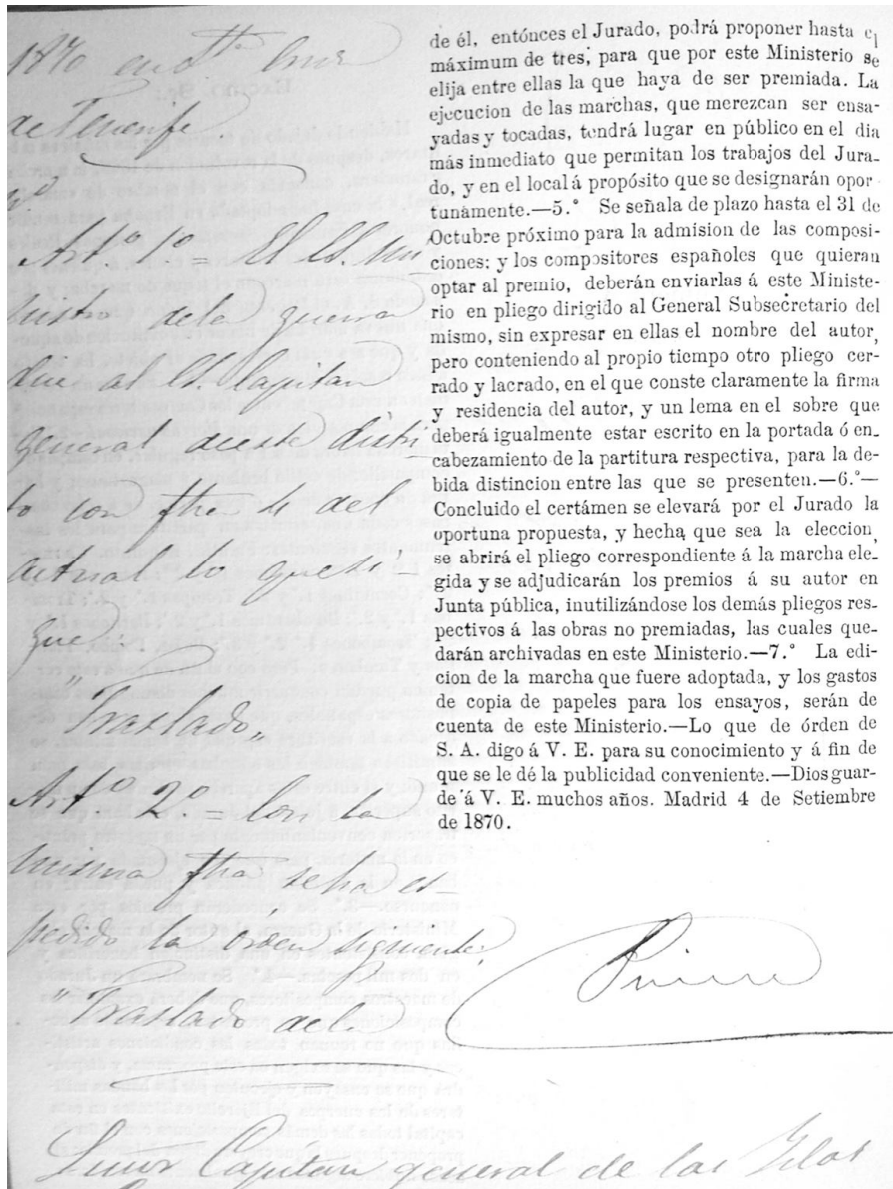 1870 en Sta Cruz
de Tenerife.
Art.º 1.º = El Sr. Mi
nistro dela guerra
dice al Sr. Capitan
general deeste distri
to con fha 4 del
actual lo quesi-
gue
"Traslado"
Art.º 2.º = Con la
misma fha seha es-
pedido la órden siguiente:
"Traslado del
de él, entónces el Jurado, podrá proponer hasta el
máximum de tres, para que por este Ministerio se
elija entre ellas la que haya de ser premiada. La
ejecucion de las marchas, que merezcan ser ensa-
yadas y tocadas, tendrá lugar en público en el dia
más inmediato que permitan los trabajos del Jura-
do, y en el local á propósito que se designarán opor-
tunamente.—5.º Se señala de plazo hasta el 31 de
Octubre próximo para la admision de las composi-
ciones: y los compositores españoles que quieran
optar al premio, deberán enviarlas á este Ministe-
rio en pliego dirigido al General Subsecretario del
mismo, sin expresar en ellas el nombre del autor,
pero conteniendo al propio tiempo otro pliego cer-
rado y lacrado, en el que conste claramente la firma
y residencia del autor, y un lema en el sobre que
deberá igualmente estar escrito en la portada ó en-
cabezamiento de la partitura respectiva, para la de-
bida distincion entre las que se presenten.—6.º—
Concluido el certámen se elevará por el Jurado la
oportuna propuesta, y hecha que sea la eleccion,
se abrirá el pliego correspondiente á la marcha ele-
gida y se adjudicarán los premios á su autor en
Junta pública, inutilizándose los demás pliegos res-
pectivos á las obras no premiadas, las cuales que-
darán archivadas en este Ministerio.—7.º La edi-
cion de la marcha que fuere adoptada, y los gastos
de copia de papeles para los ensayos, serán de
cuenta de este Ministerio.—Lo que de órden de
S. A. digo á V. E. para su conocimiento y á fin de
que se le dé la publicidad conveniente.—Dios guar-
de á V. E. muchos años. Madrid 4 de Setiembre
de 1870.
Prim
Señor Capitan general de las Islas